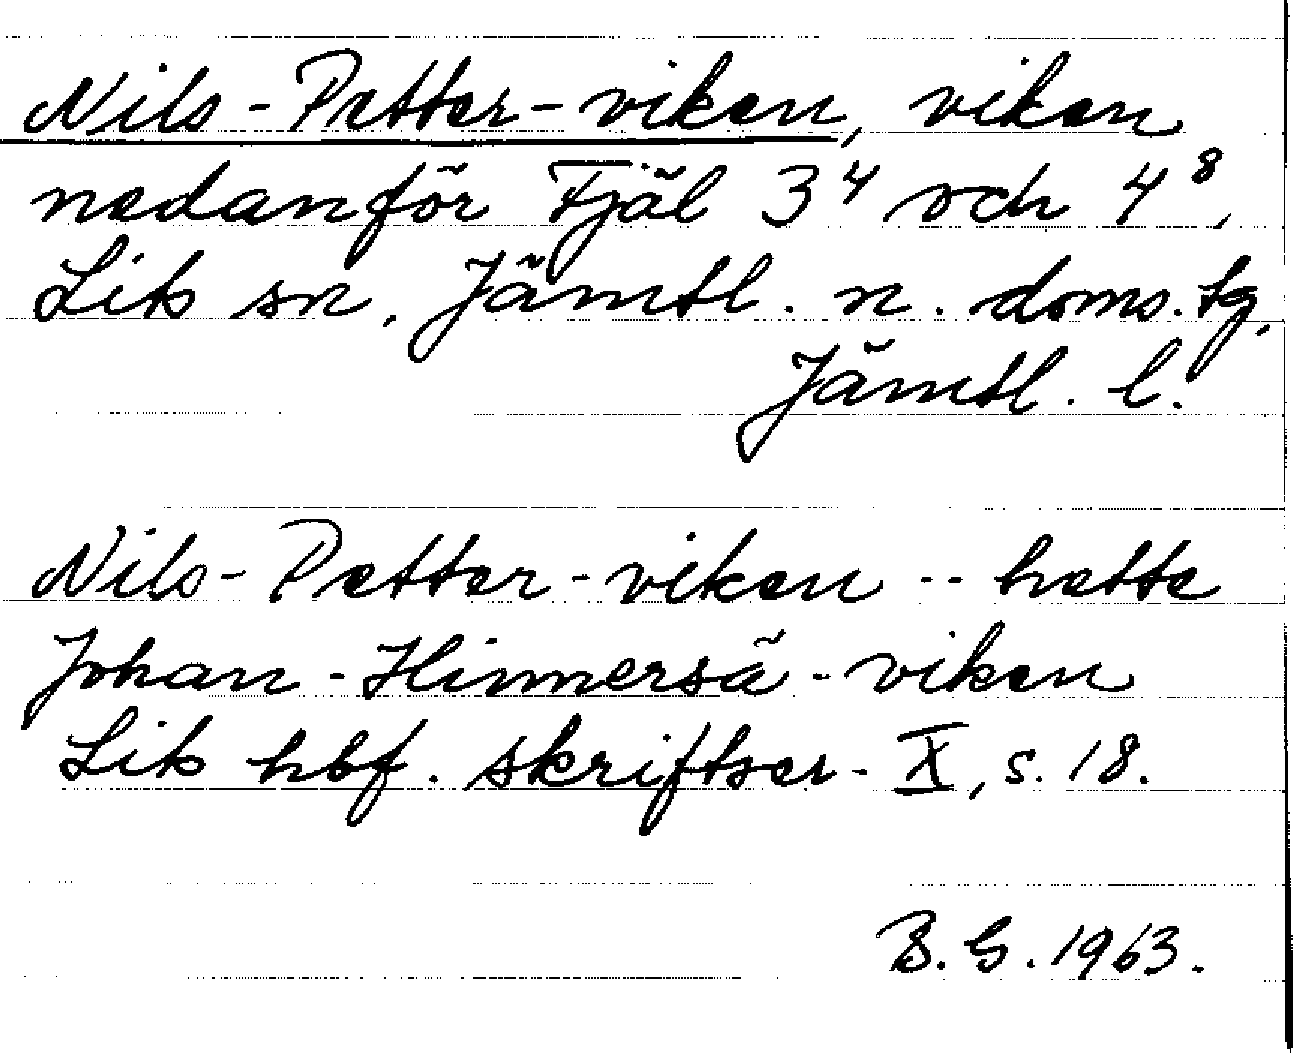 Nils-Petter-viken, viken
nedanför Fjäl 3⁴ och 4⁸,
Lits sn, Jämtl. n. doms. tg.
Jämtl. l.
Nils-Petter-viken -- hette
Johan-Hinnersä-viken
Lits hbf. skriftser. X, s. 18.
B. G. 1963.